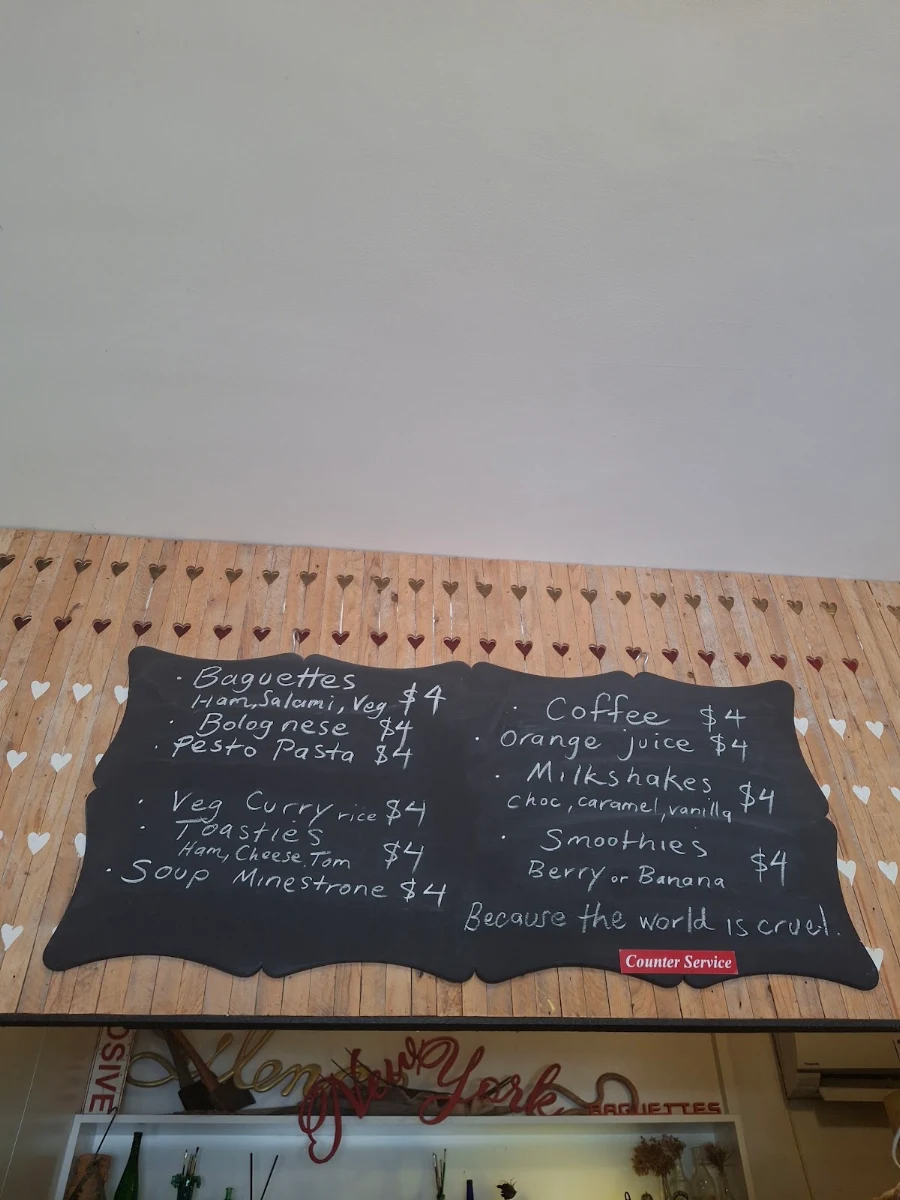 · Baguettes
Ham, Salami, Veg $4
· Bolognese $4
· Pesto Pasta $4
· Veg Curry rice $4
· Toasties
Ham, Cheese, Tom $4
· Soup Minestrone $4
· Coffee $4
· Orange juice $4
· Milkshakes
choc, caramel, vanilla $4
· Smoothies
Berry or Banana $4
Because the world is cruel.
Counter Service
OSIVE
New York
BAGUETTES